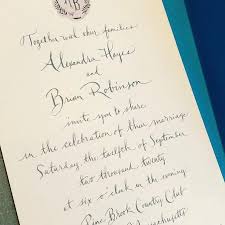 Together with their families
Alexandra Hayes
and
Brian Robinson
invite you to share
in the celebration of their marriage
Saturday, the twelfth of September
two thousand twenty
at six o'clock in the evening
Pine Brook Country Club
Massachusetts